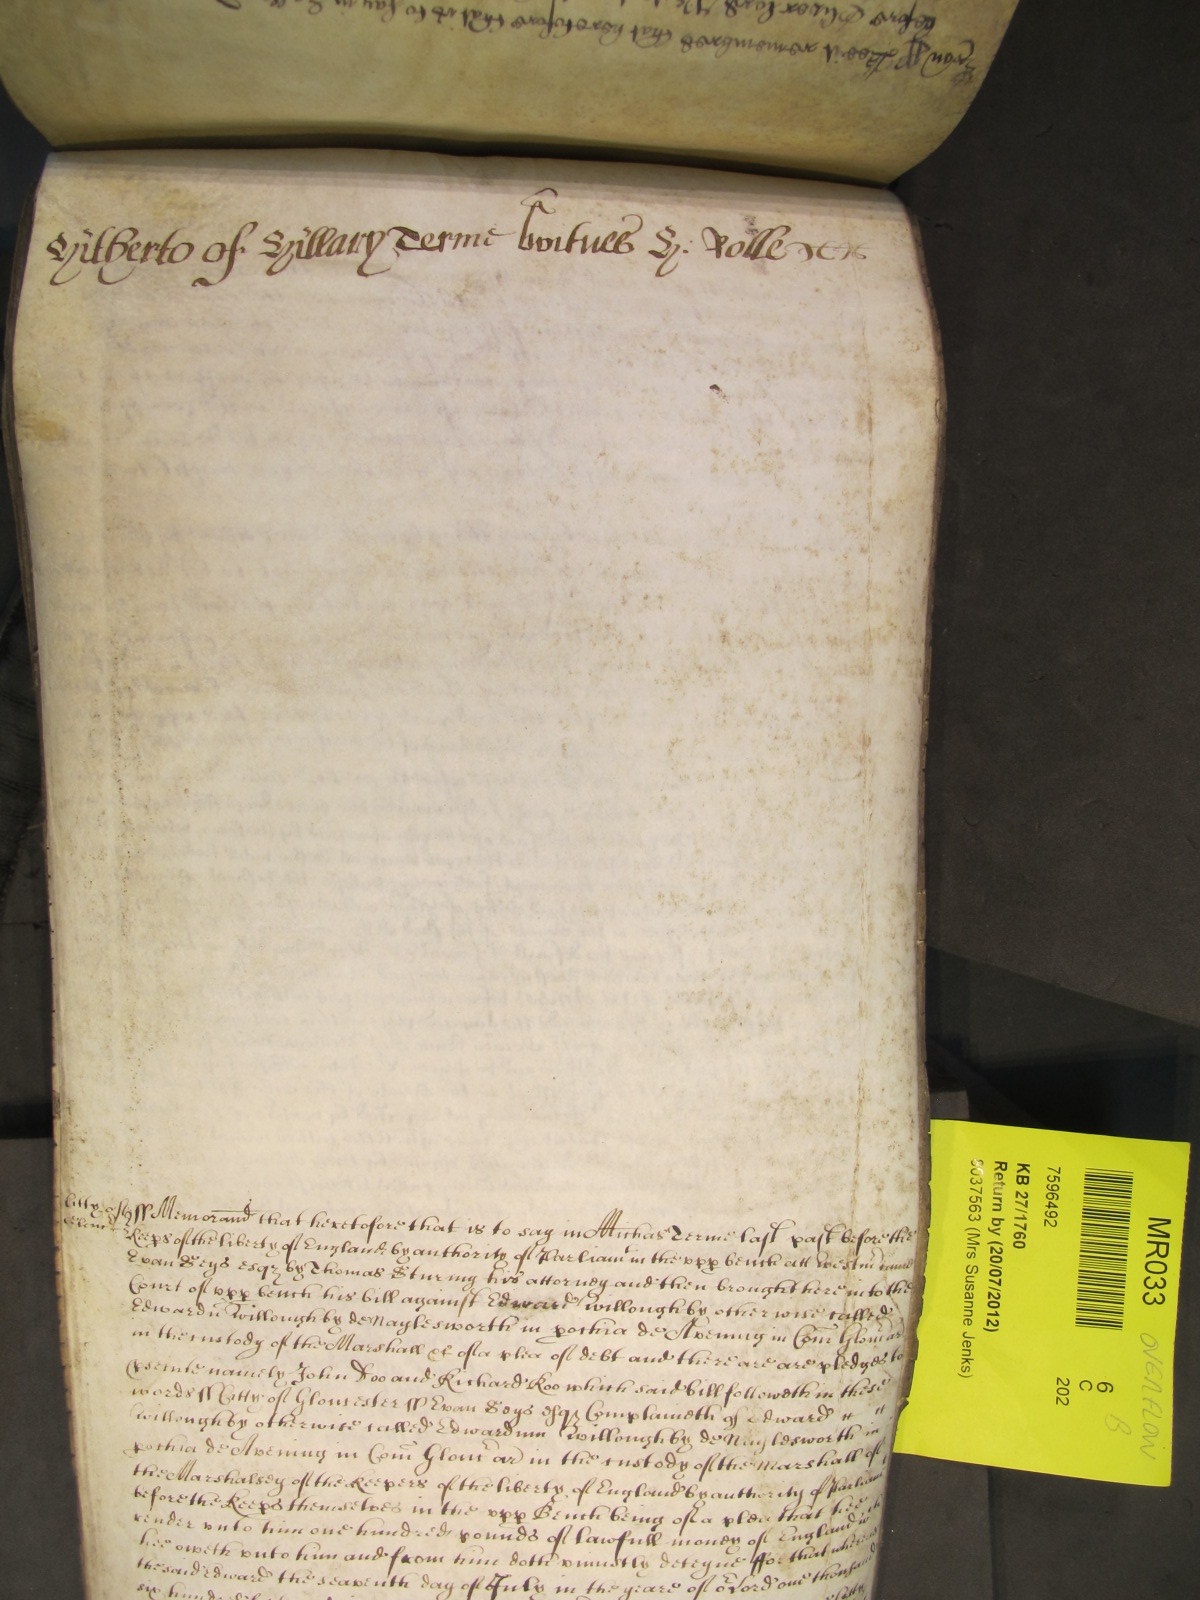 before
Bee it remembred that heretofore that is to say in
Hitherto of Hillary Terme Witnes H: Rolle
Citty of Glouc ss Memorand that heretofore that is to say in Michas Terme last past before the
Keeps of the liberty of England by authority of Parliam in the upp bench att Westm came
Evan Seys esqr by Thomas Sturmy his attorney and then brought here into the
Court of upp bench his bill against Edward Willoughby otherwise called
Edwardu Willoughby de Naylesworth in pochia de Avening in Com Glouc ar
in the custody of the Marshall &c of a plea of debt and there are are pledges to
psecute namely John Doo and Richard Roo which said bill followeth in these
words ss Citty of Gloucester ss Evan Seys esqr Complaineth of Edward
Willoughby otherwise called Edwardum Willoughby de Naylesworth in
pochia de Avening in Com Glouc ar in the custody of the Marshall of
the Marshalsey of the Keepers of the liberty of England by authority of Parliam
before the Keeps themselves in the upp Bench being of a plea that hee
render unto him one hundred pounds of lawfull money of England
hee oweth unto him and from him doth uniustly deteyne ffor that
the said Edward the seaventh day of July in the yeare of or Lord one thousand
six hundred
MR033
6
C
202
7596492
KB 27/1760
Return by (20/07/2012)
9037563 (Mrs Susanne Jenks)
OVERFLOW
B